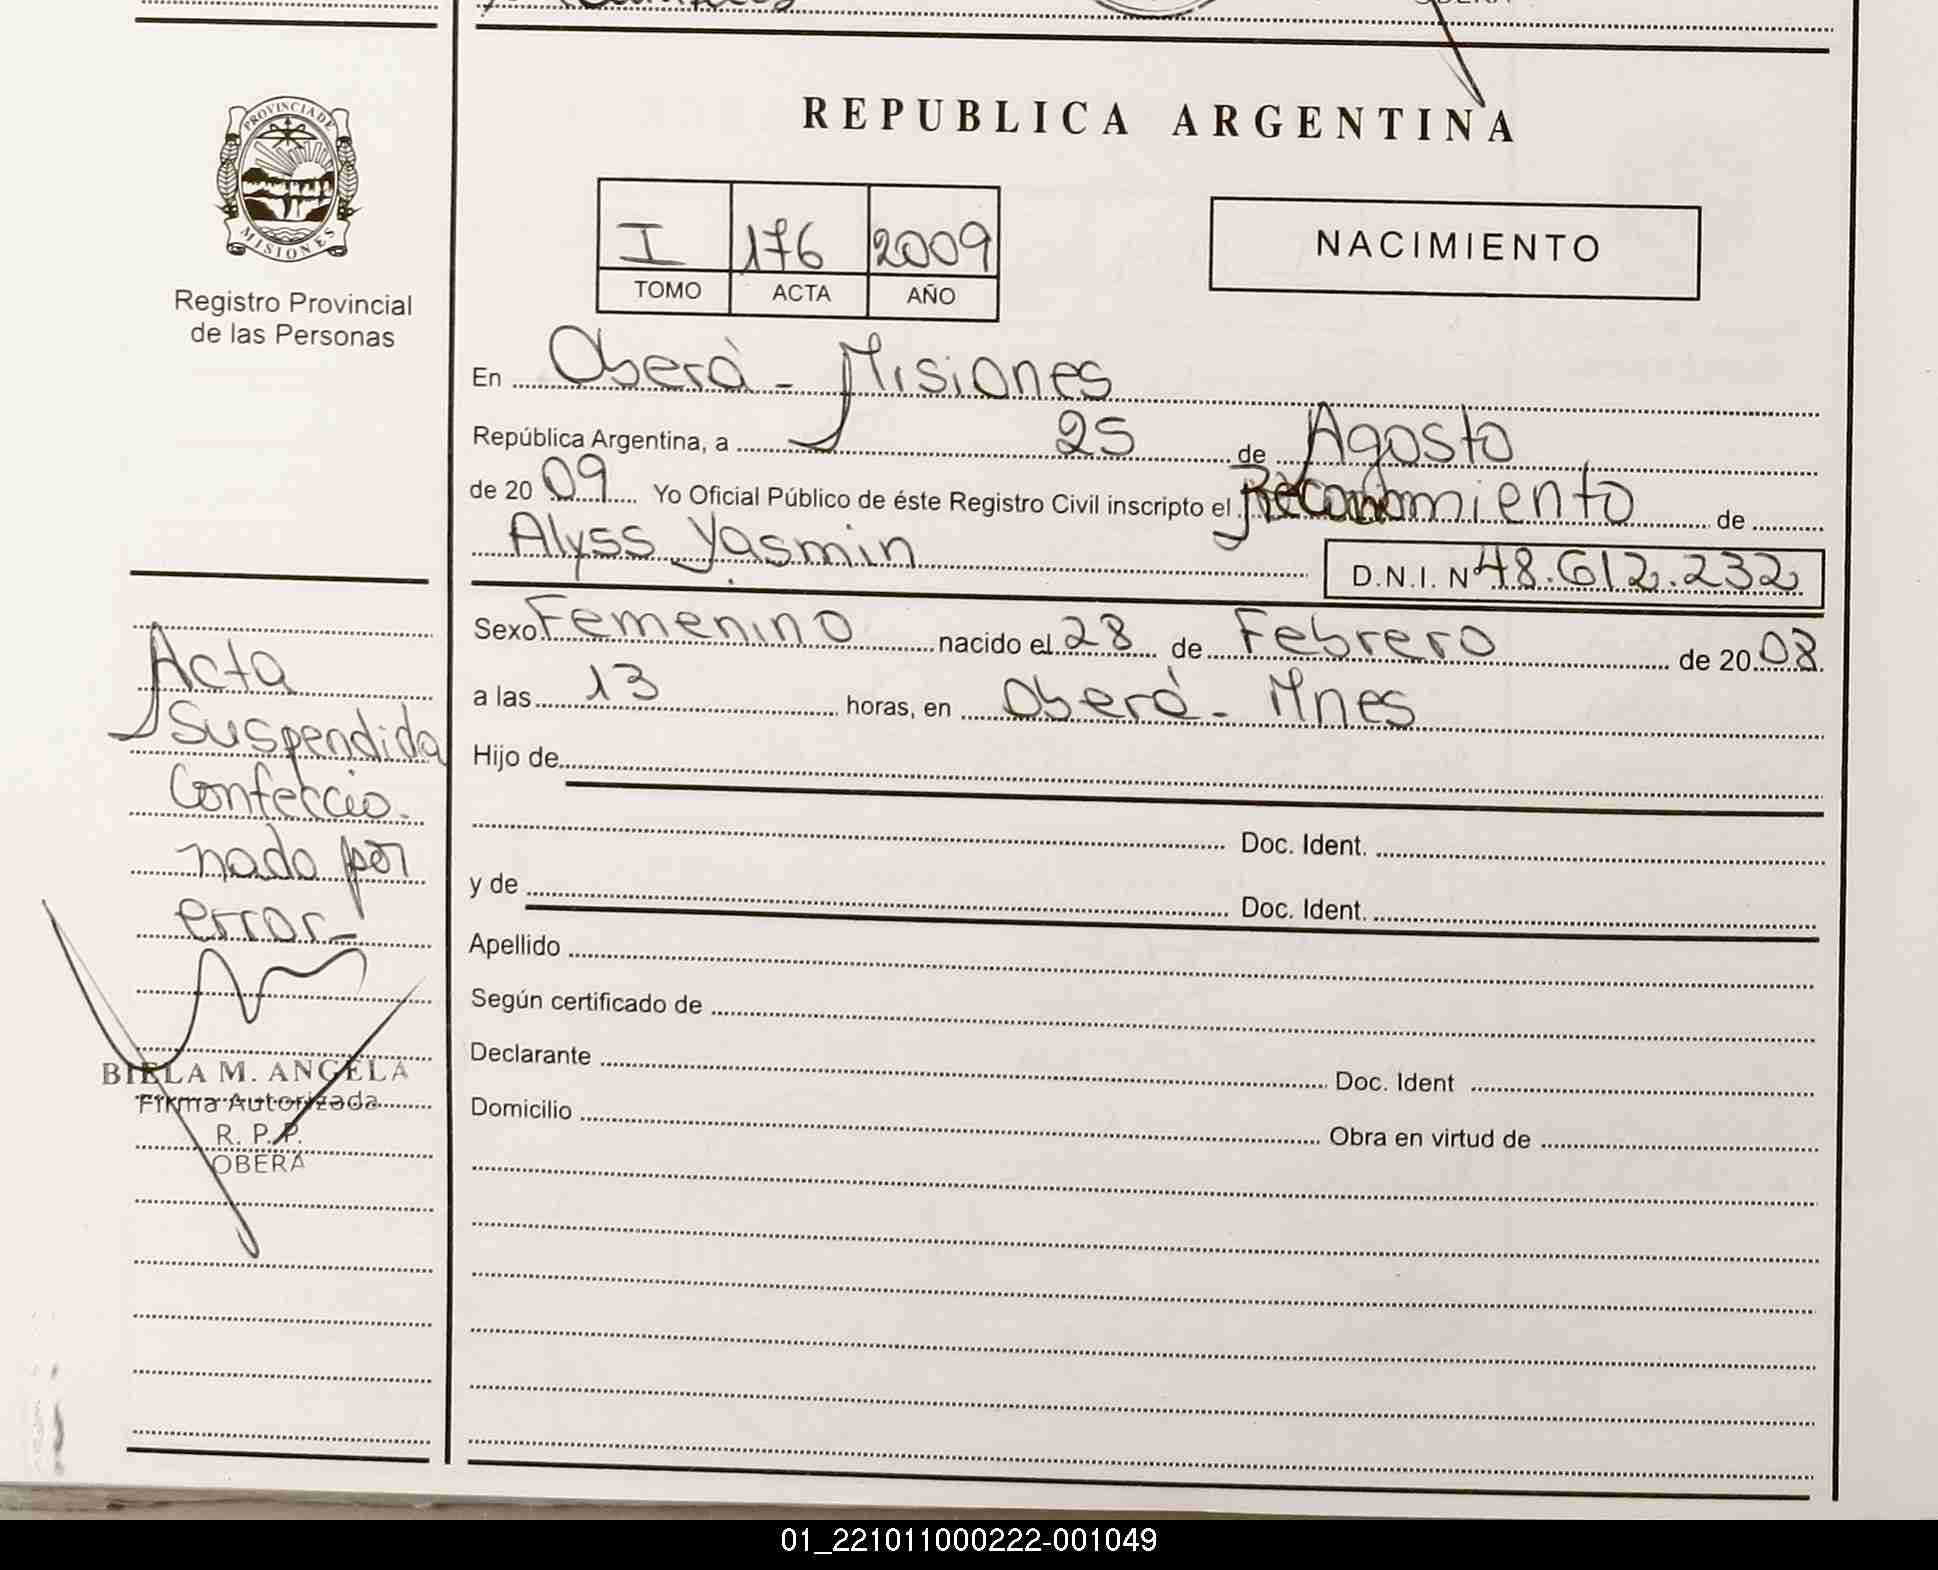 REPUBLICA ARGENTINA
PROVINCIA DE
MISIONES
Registro Provincial
de las Personas
I 176 2009
TOMO ACTA AÑO
NACIMIENTO
En Oberá - Misiones
República Argentina, a 25 de Agosto
de 2009 Yo Oficial Público de éste Registro Civil inscripto el Reconomiento de
Alyss Yasmin D.N.I. Nº 48.612.232
Sexo Femenino nacido el 28 de Febrero de 2008
a las 13 horas, en Oberá - Mnes
Hijo de
Doc. Ident.
y de Doc. Ident.
Apellido
Según certificado de
Declarante Doc. Ident
Domicilio Obra en virtud de
Acta
Suspendida
Confeccio-
nado por
error-
BIELA M. ANGELA
Firma Autorizada
R. P. P.
OBERÁ
01_221011000222-001049